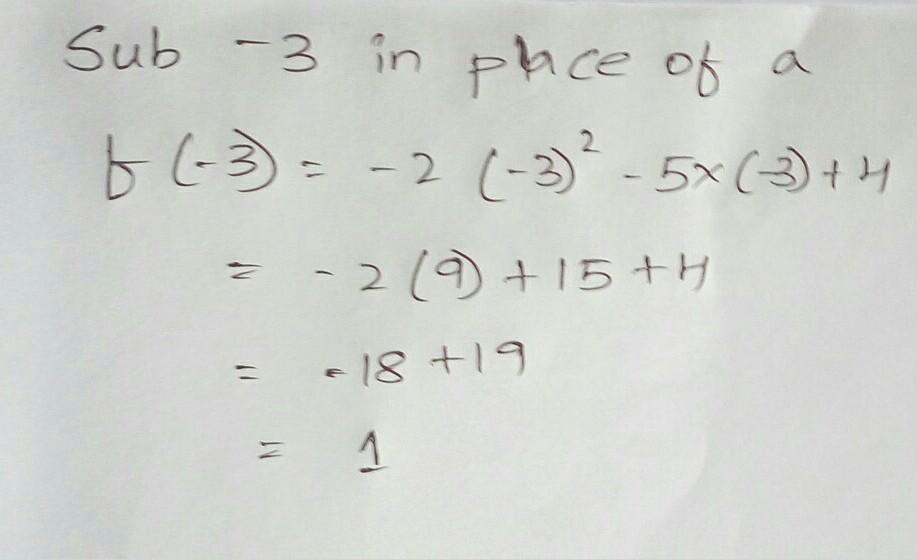 Sub -3 in place of a
f(-3) = -2 (-3)² - 5x(-3)+4
= -2(9)+15+4
= -18+19
= 1